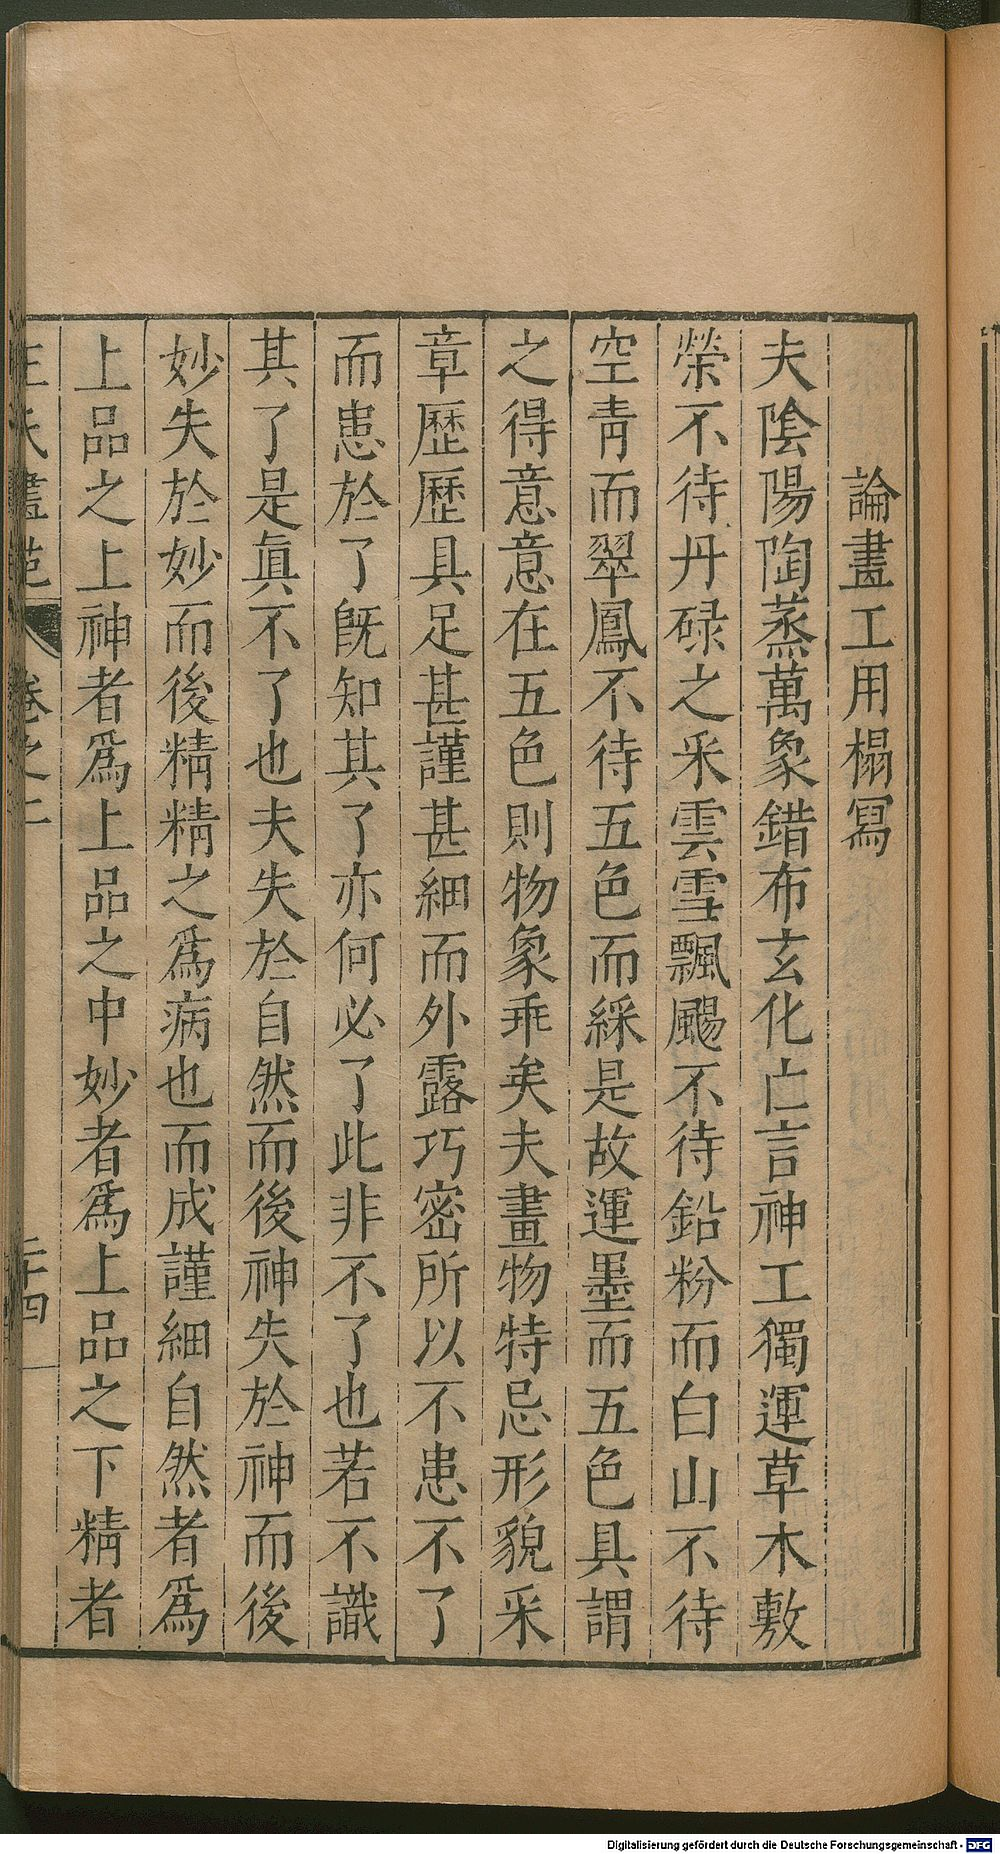 論畫工用榻冩
夫陰陽陶蒸萬象錯布玄化亡言神工獨運草木敷
榮不待丹碌之采雲雪飄颺不待鉛粉而白山不待
空青而翠鳳不待五色而綵是故運墨而五色具謂
之得意意在五色則物象乖矣夫畫物特忌形貌采
章歷歷具足甚謹甚細而外露巧密所以不患不了
而患於了旣知其了亦何必了此非不了也若不識
其了是眞不了也夫失於自然而後神失於神而後
妙失於妙而後精精之爲病也而成謹細自然者爲
上品之上神者爲上品之中妙者爲上品之下精者
王氏畫苑 卷之二 二十四
Digitalisierung gefördert durch die Deutsche Forschungsgemeinschaft - DFG